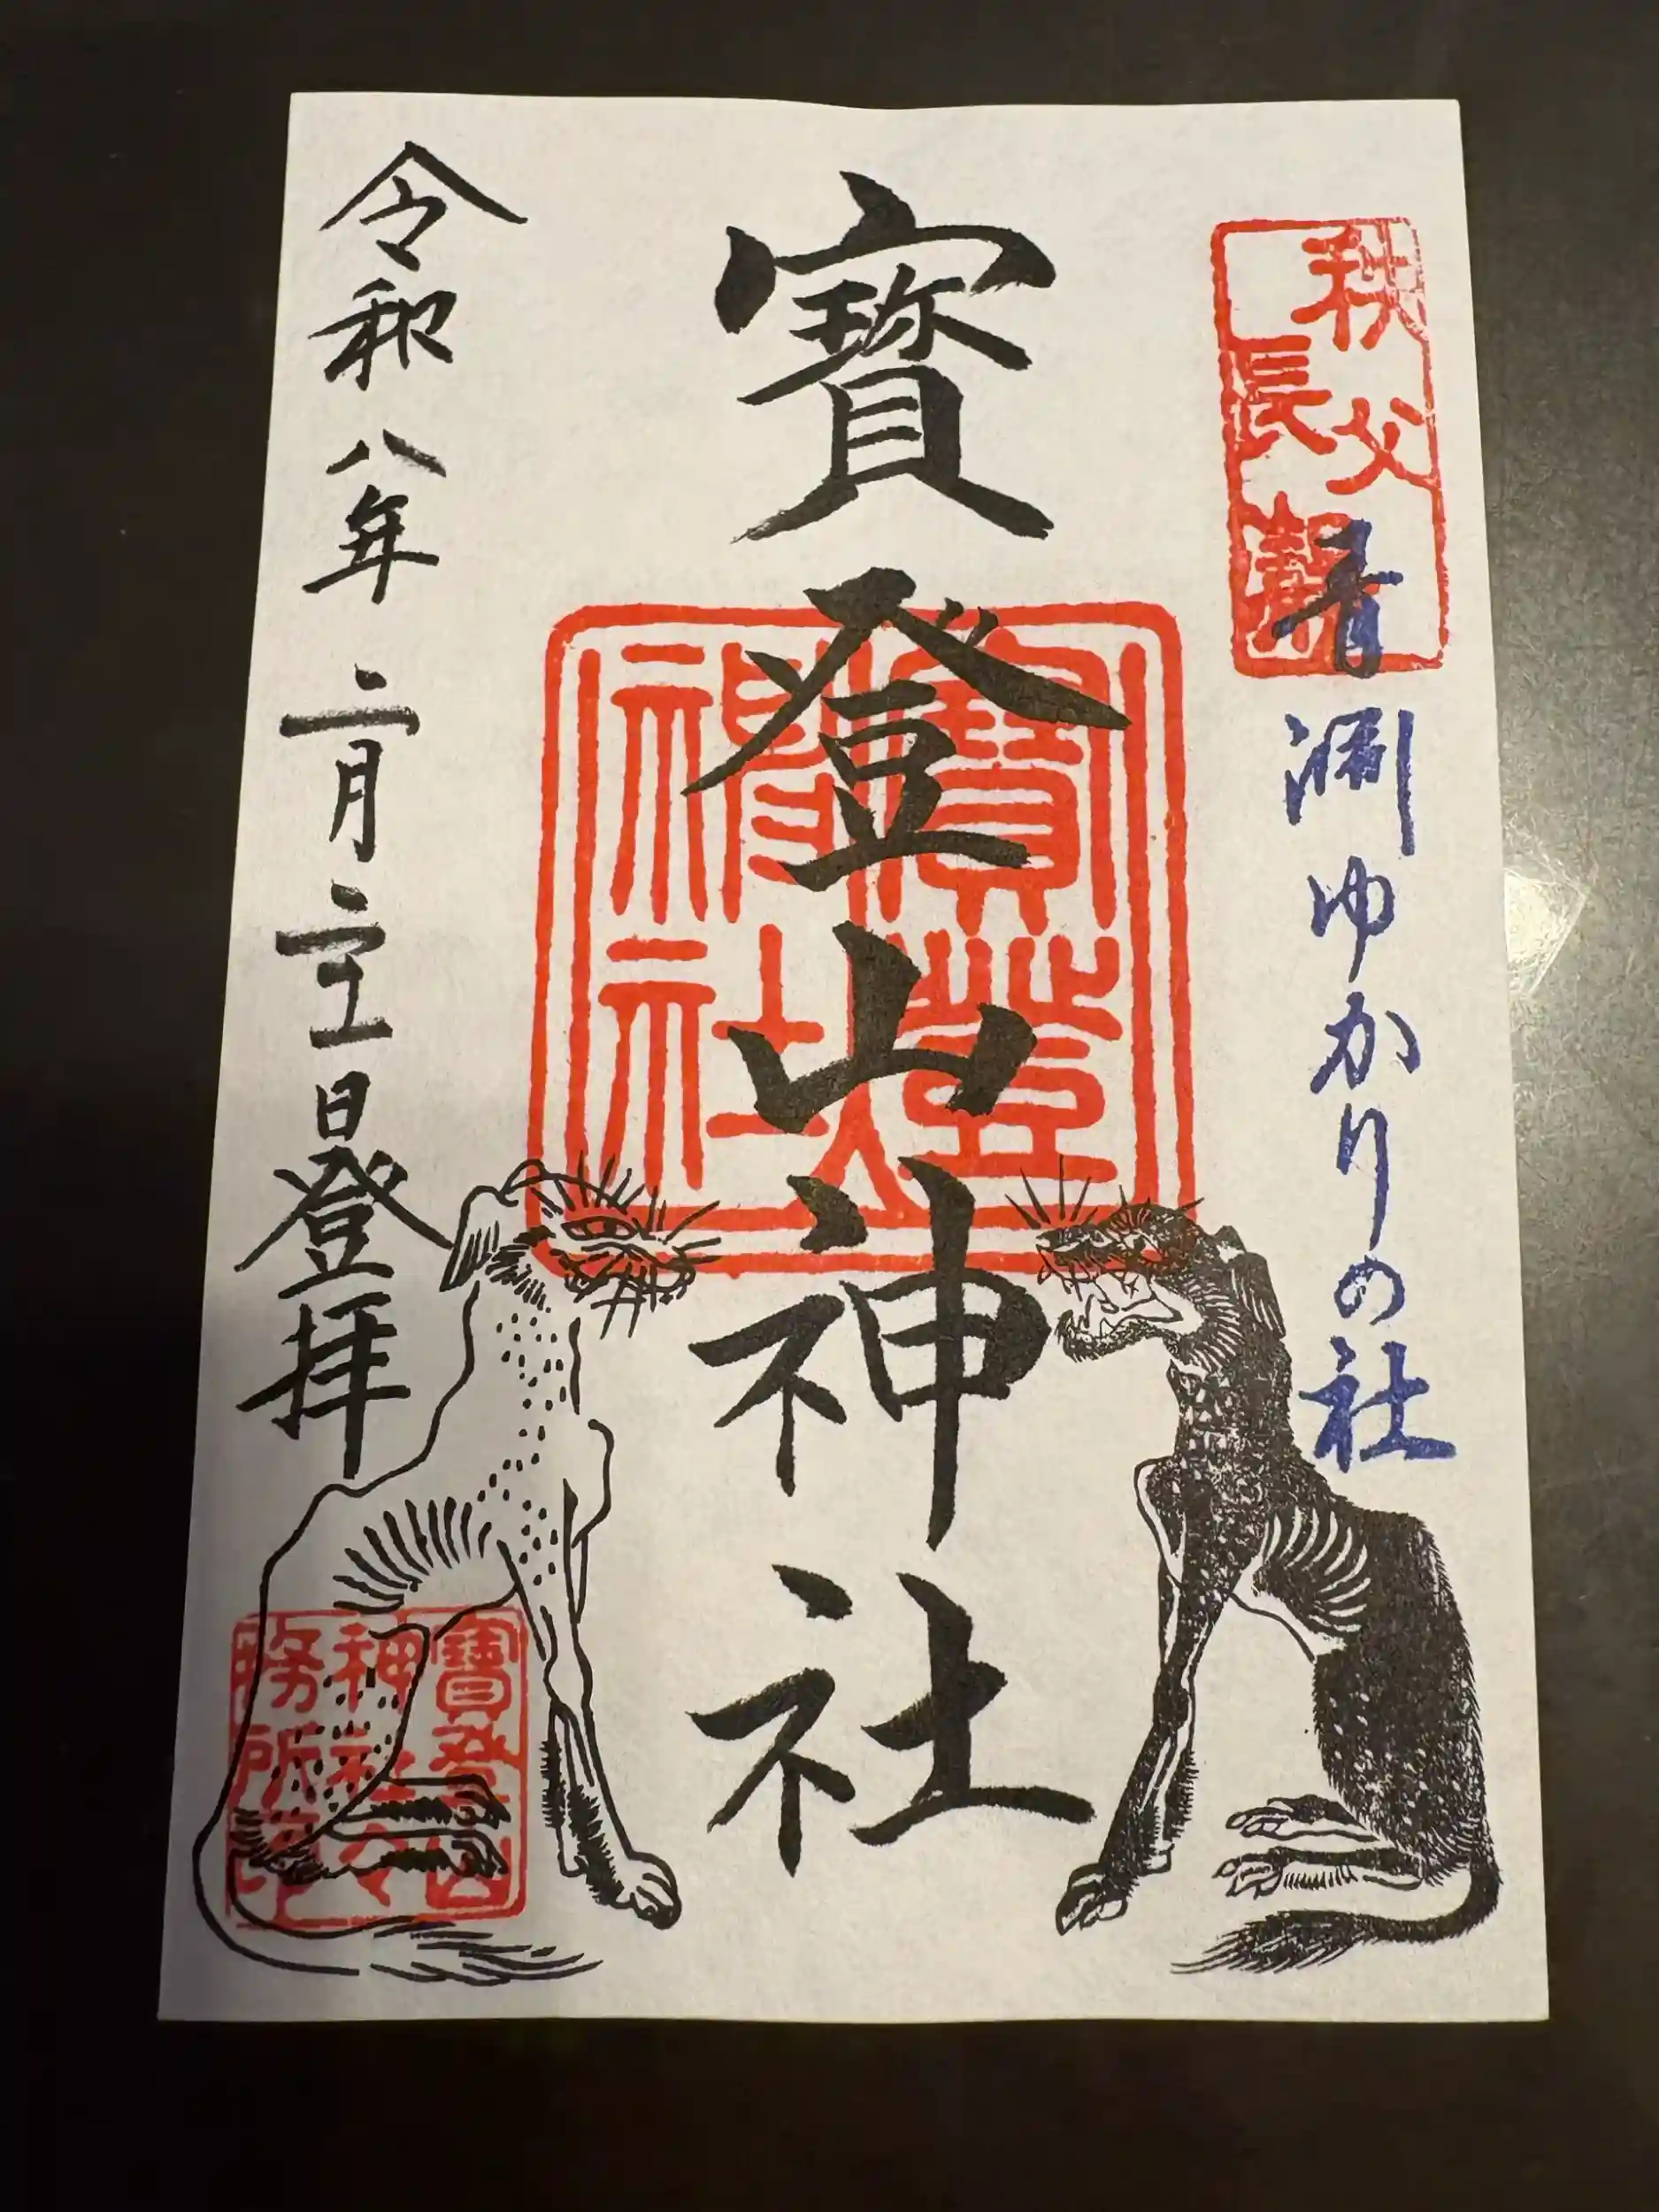 秩父
長瀞
青淵ゆかりの社
寶登山神社
寶登山
神社
令和八年二月二十一日登拝
寶登山
神社々
務所印